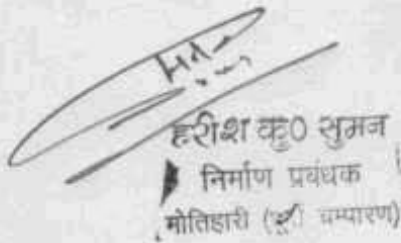 हरीश कु० सुमन
निर्माण प्रबंधक
मोतिहारी (पूर्वी चम्पारण)